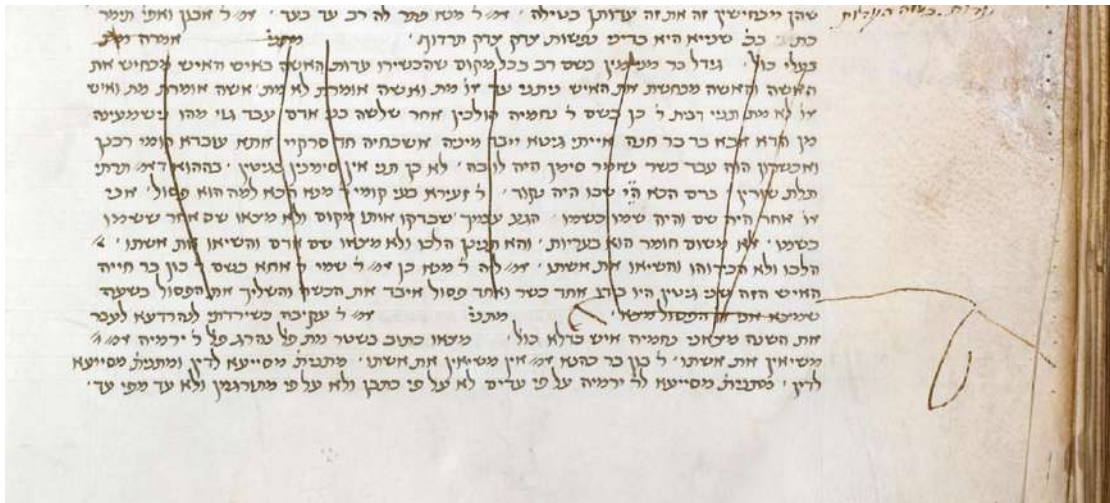 שהן מכחישין זה את זה עדותן בטילה ׳ אמ׳ ר׳ מנא פתר לה רב עד בעד ׳ אמ׳ ר׳ אבון ואפי׳ תימר
שנייא היא בדיני נפשות צדק צדק תרדוף ׳ מתני׳ אמרה מת
בעלי כול׳ גידל בר מנימין בשם רב בכל מקום שהכשירו עדות האשה באיש האיש מכחיש את
האשה והאשה מכחשת את האיש ניתני עד או׳ מת ואשה אומרת לא מת ׳ אשה אומרת מת ואיש
או׳ לא מת תני ר׳ כן בשם ר׳ נחמיה הולכין אחר שלשה בני אדם עבד גוי מהו נישמעינה
מן הדא אבא בר בר חנה אייתי גיטא ייבד מיניה אשכחיה חד סרקיי אתא עובדא קומי רבנן
ואכשרון הוה עבר כשר נאמר סימן היה לו בה ׳ לא כן תני אין סימנין בגיטין ׳ בההוא דאמ׳ תרתי
תלת שורין ׳ ברם הכא ה״י שבו היה נקוד ׳ ר׳ זעירא בעי קומי ר׳ מנא הכא למה הוא פסול ׳ אני
או׳ אחר היה שם והיה שמו כשמו ׳ הגע עצמך שבדקו אותו מקום ולא מצאו שם אחר ששימו
כשמו ׳ אלא משום חומר הוא בעריות ׳ והא תנינן הלכו ולא מצאו שם אדם והשיאו את אשתו ׳
הלכו ולא הכירוהו והשיאו את אשתו ׳ אמ׳ ליה ר׳ מנא כן אמ׳ ר׳ שמי ר׳ אחא בשם ר׳ בון בר חייה
האיש הזה שני גיטין היו בידו אחד כשר ואחד פסול איבד את הכשר והשליך את הפסול בשעה
שמיצא אם זה הפסול מצא ׳ מתני׳ אמ׳ ר׳ עקיבה כשירדתי לנהרדעא לעבר
את השנה מצאני נחמיה איש בדלא כול׳ ׳ מצאו כתוב בשטר מת פל׳ נהרג פל׳ ר׳ ירמיה אמ׳
משיאין את אשתו ׳ ר׳ בון בר כהנא אמ׳ אין משיאין את אשתו ׳ מתנית׳ מסייעא לדין ומתנית׳ מסייעא
לדין ׳ מתנית׳ מסייעא לר׳ ירמיה על פי עדים לא על פי כתבן ולא על פי מתורגמן ולא עד מפי עד ׳